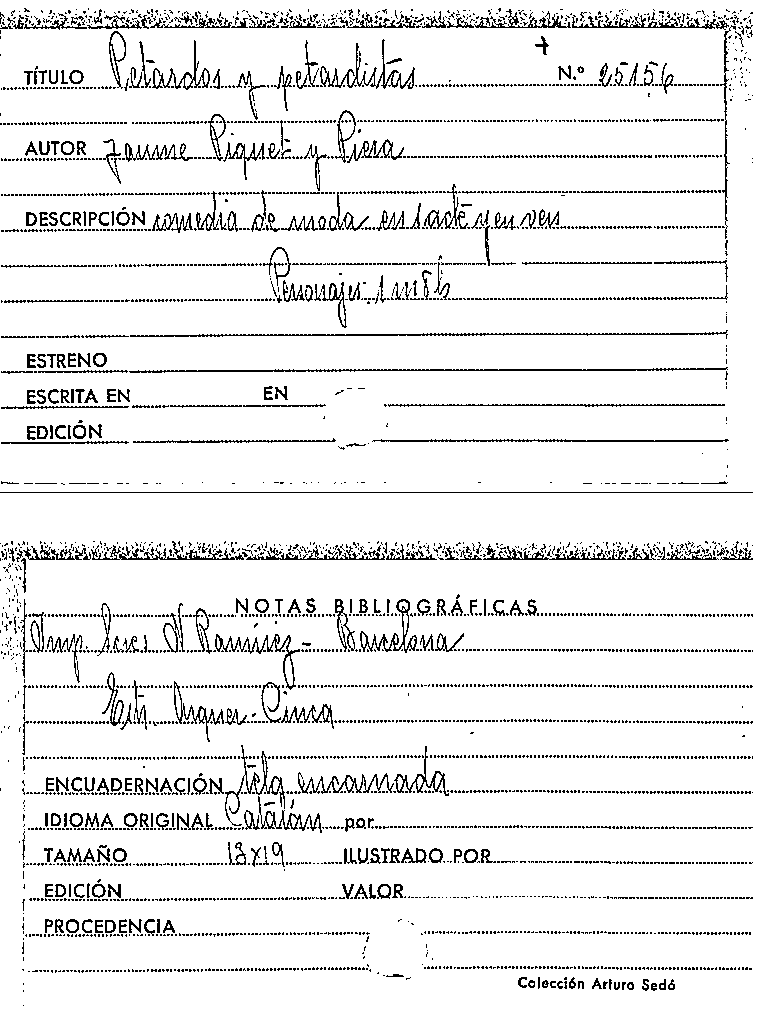 +
TÍTULO Petardos y petardistas N.º 25156
AUTOR Jaume Piquet y Piera
DESCRIPCIÓN comedia de moda en 1 acte y en vers
Personajes. 1 m 8 h
ESTRENO
ESCRITA EN EN
EDICIÓN
NOTAS BIBLIOGRÁFICAS
Imp. Sces. N Ramírez - Barcelona
Estr. Cinca
ENCUADERNACIÓN tela encarnada
IDIOMA ORIGINAL Catalán por
TAMAÑO 13x19 ILUSTRADO POR
EDICIÓN VALOR
PROCEDENCIA
Colección Arturo Sedó